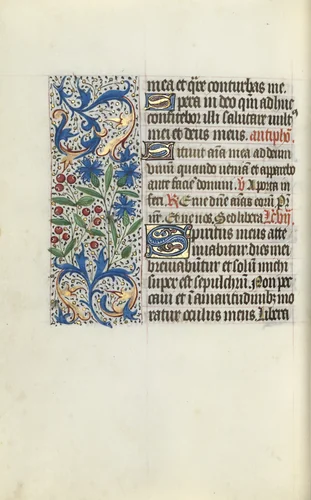 mea et q̄re conturbas me.
Spera in deo qm̄ adhuc
confitebor illi salutare vult⁹
mei et deus meus. antipho.
Sitivit aīa mea ad deum
vivū quando veniā et apparebo
ante faciē domini. V A porta in
feri. R Erue dn̄e aīas eorū P
Et ne nos. Sed libera
Spiritus meus atte
nuabitur dies mei
breviabūtur et solū michi
super est sepulchrū. Non pec
cavi et ī amaritudinib⁹ mo
ratur oculus meus. Libera